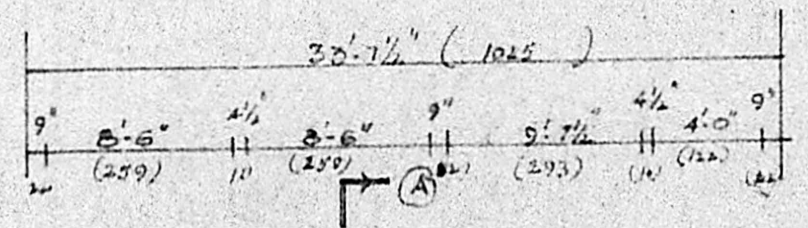 33'-7½" (1025)
9" 8'-6" 4½" 8'-6" 9" 9'-7½" 4½" 4'-0" 9"
(259) (259) (293) (122)
A